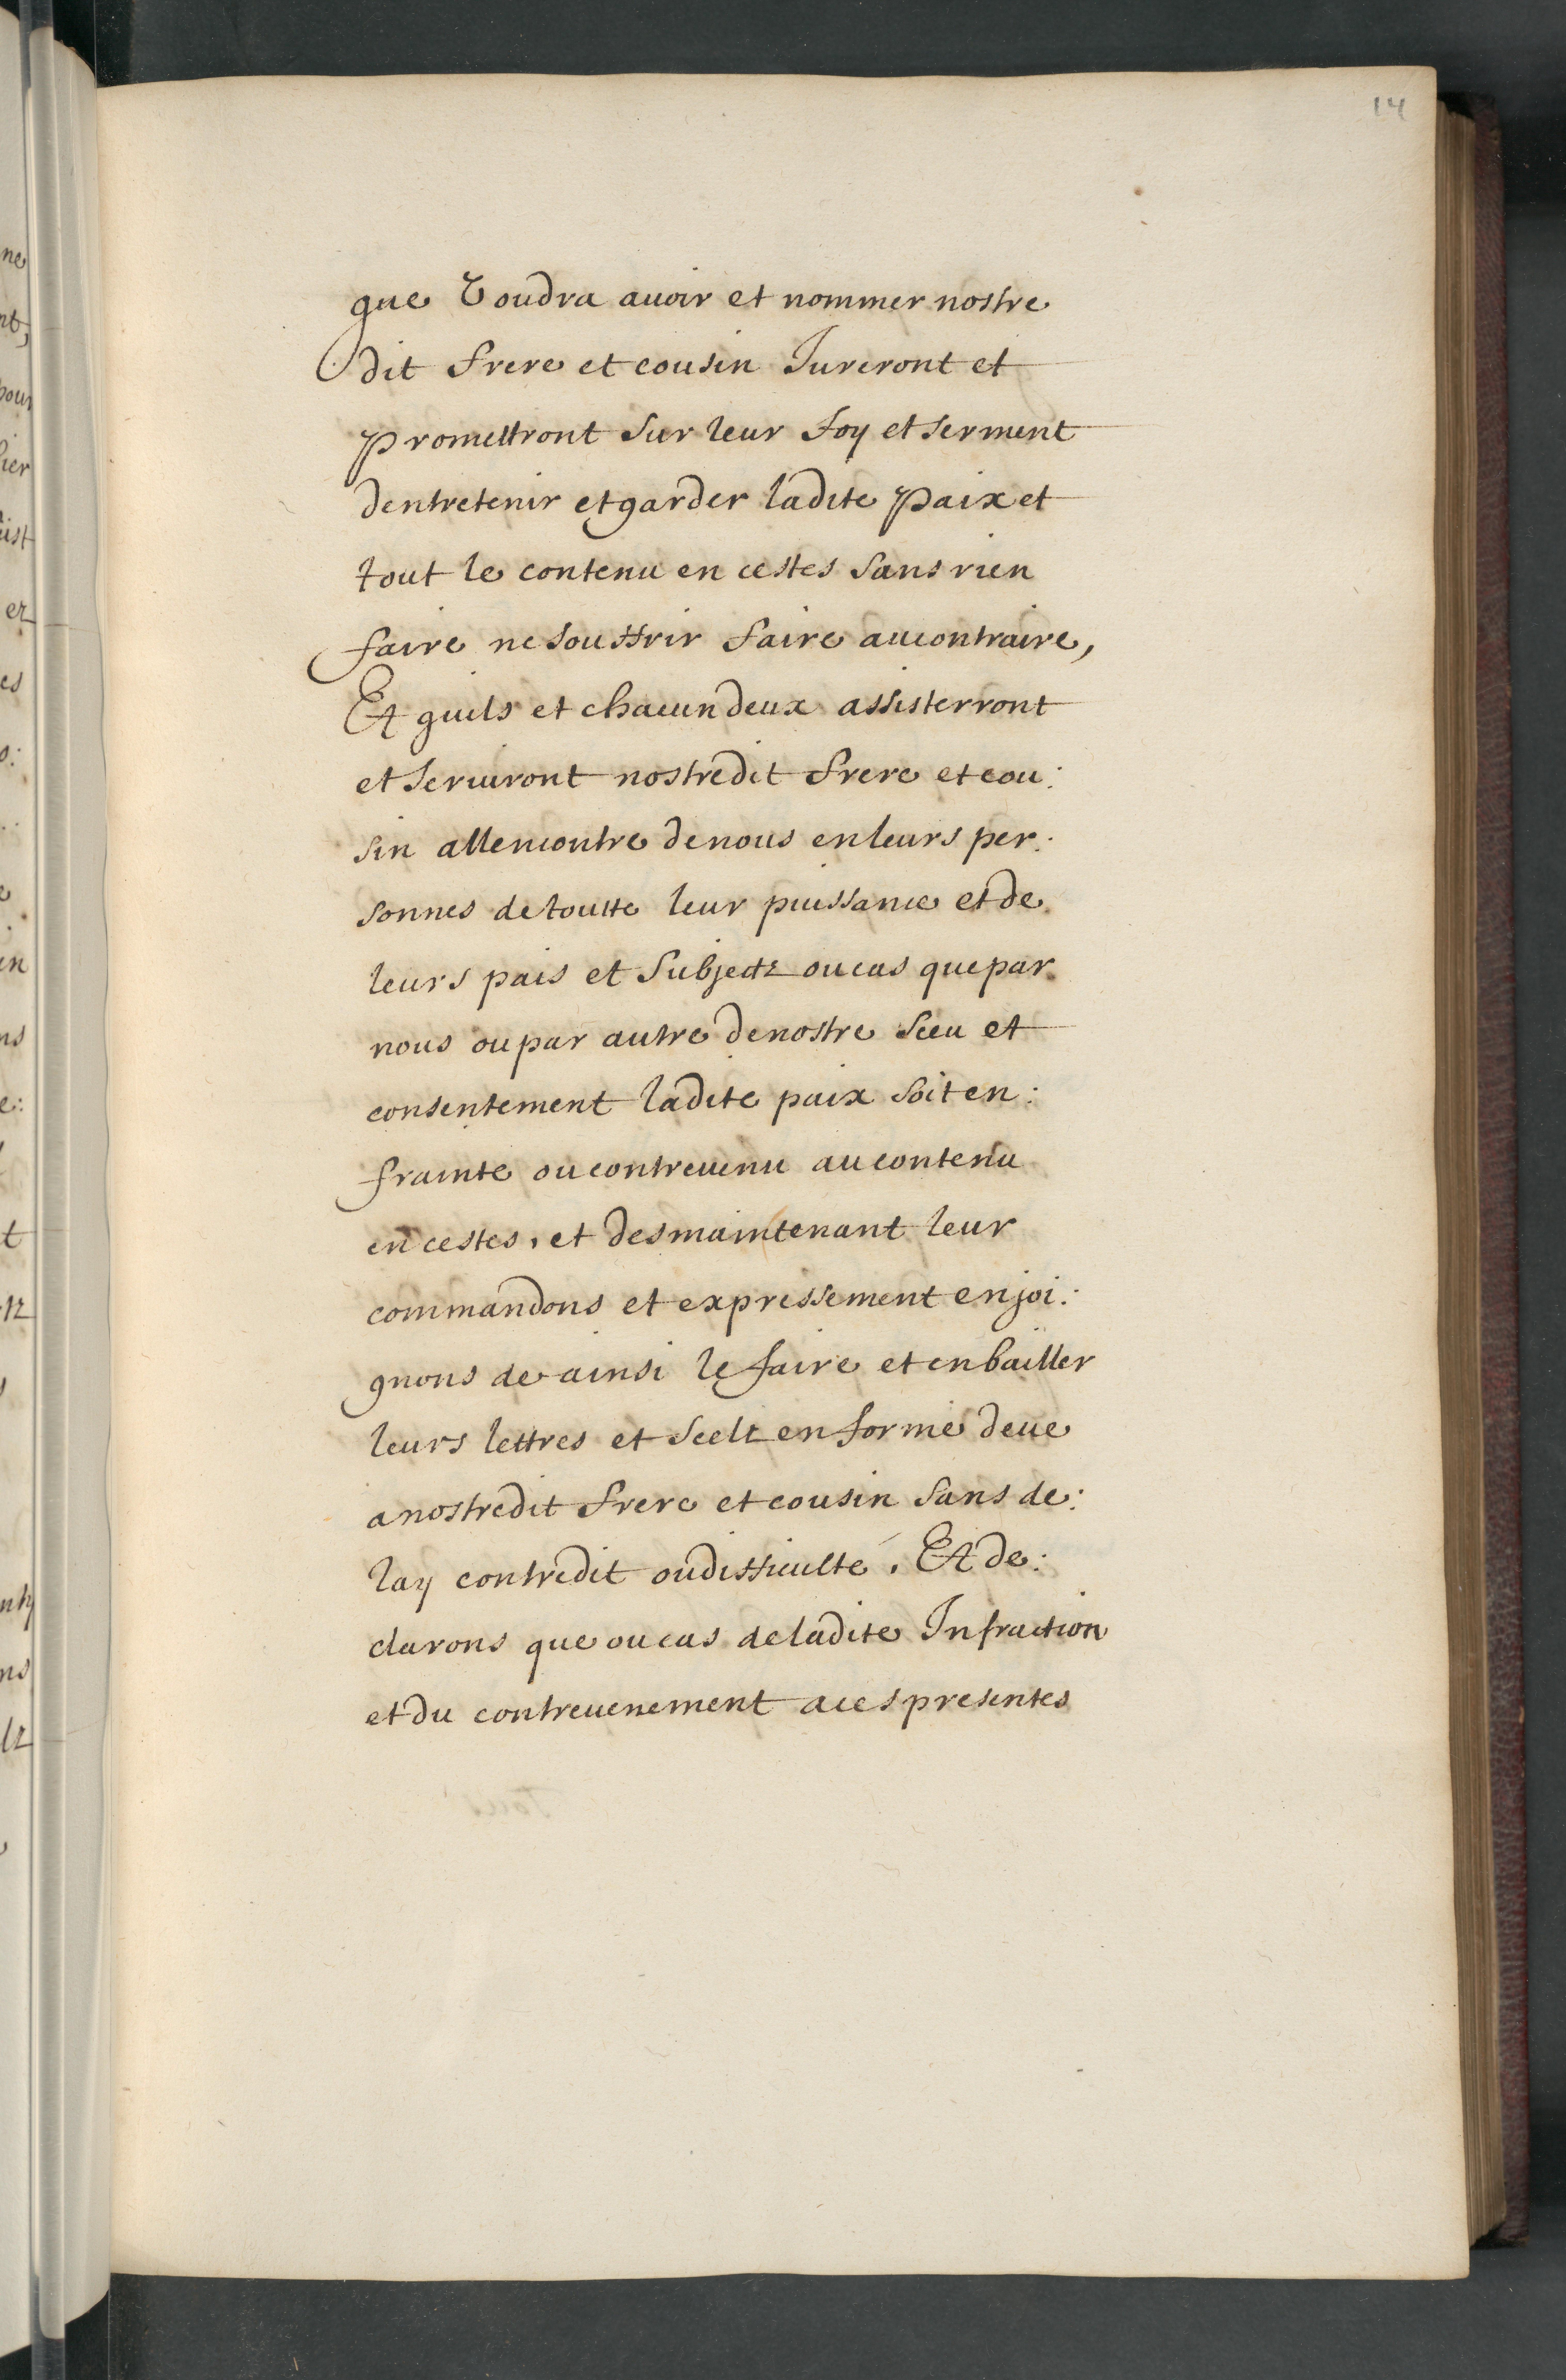 14
que Voudra auoir et nommer nostre
dit frere et cousin Jureront et
promettront sur leur foy et serment
dentretenir et garder ladite paix et
tout le contenu en cestes sans rien
faire ne souffrir faire au contraire,
Et quils et chacun deux assisterront
et seruiront nostredit frere et cou:
sin allencontre de nous en leurs per:
sonnes de toutte leur puissance et de
leurs pais et subjectz ou cas que par
nous ou par autre de nostre sceu et
consentement ladite paix soit en:
frainte ou contreuenu au contenu
en cestes, et des maintenant leur
commandons et expressement enjoi:
gnons de ainsi le faire et en bailler
leurs lettres et seelz en forme deue
a nostredit frere et cousin sans de:
lay contredit ou difficulté. Et de:
clarons que ou cas de ladite Infraction
et du contreuenement a ces presentes